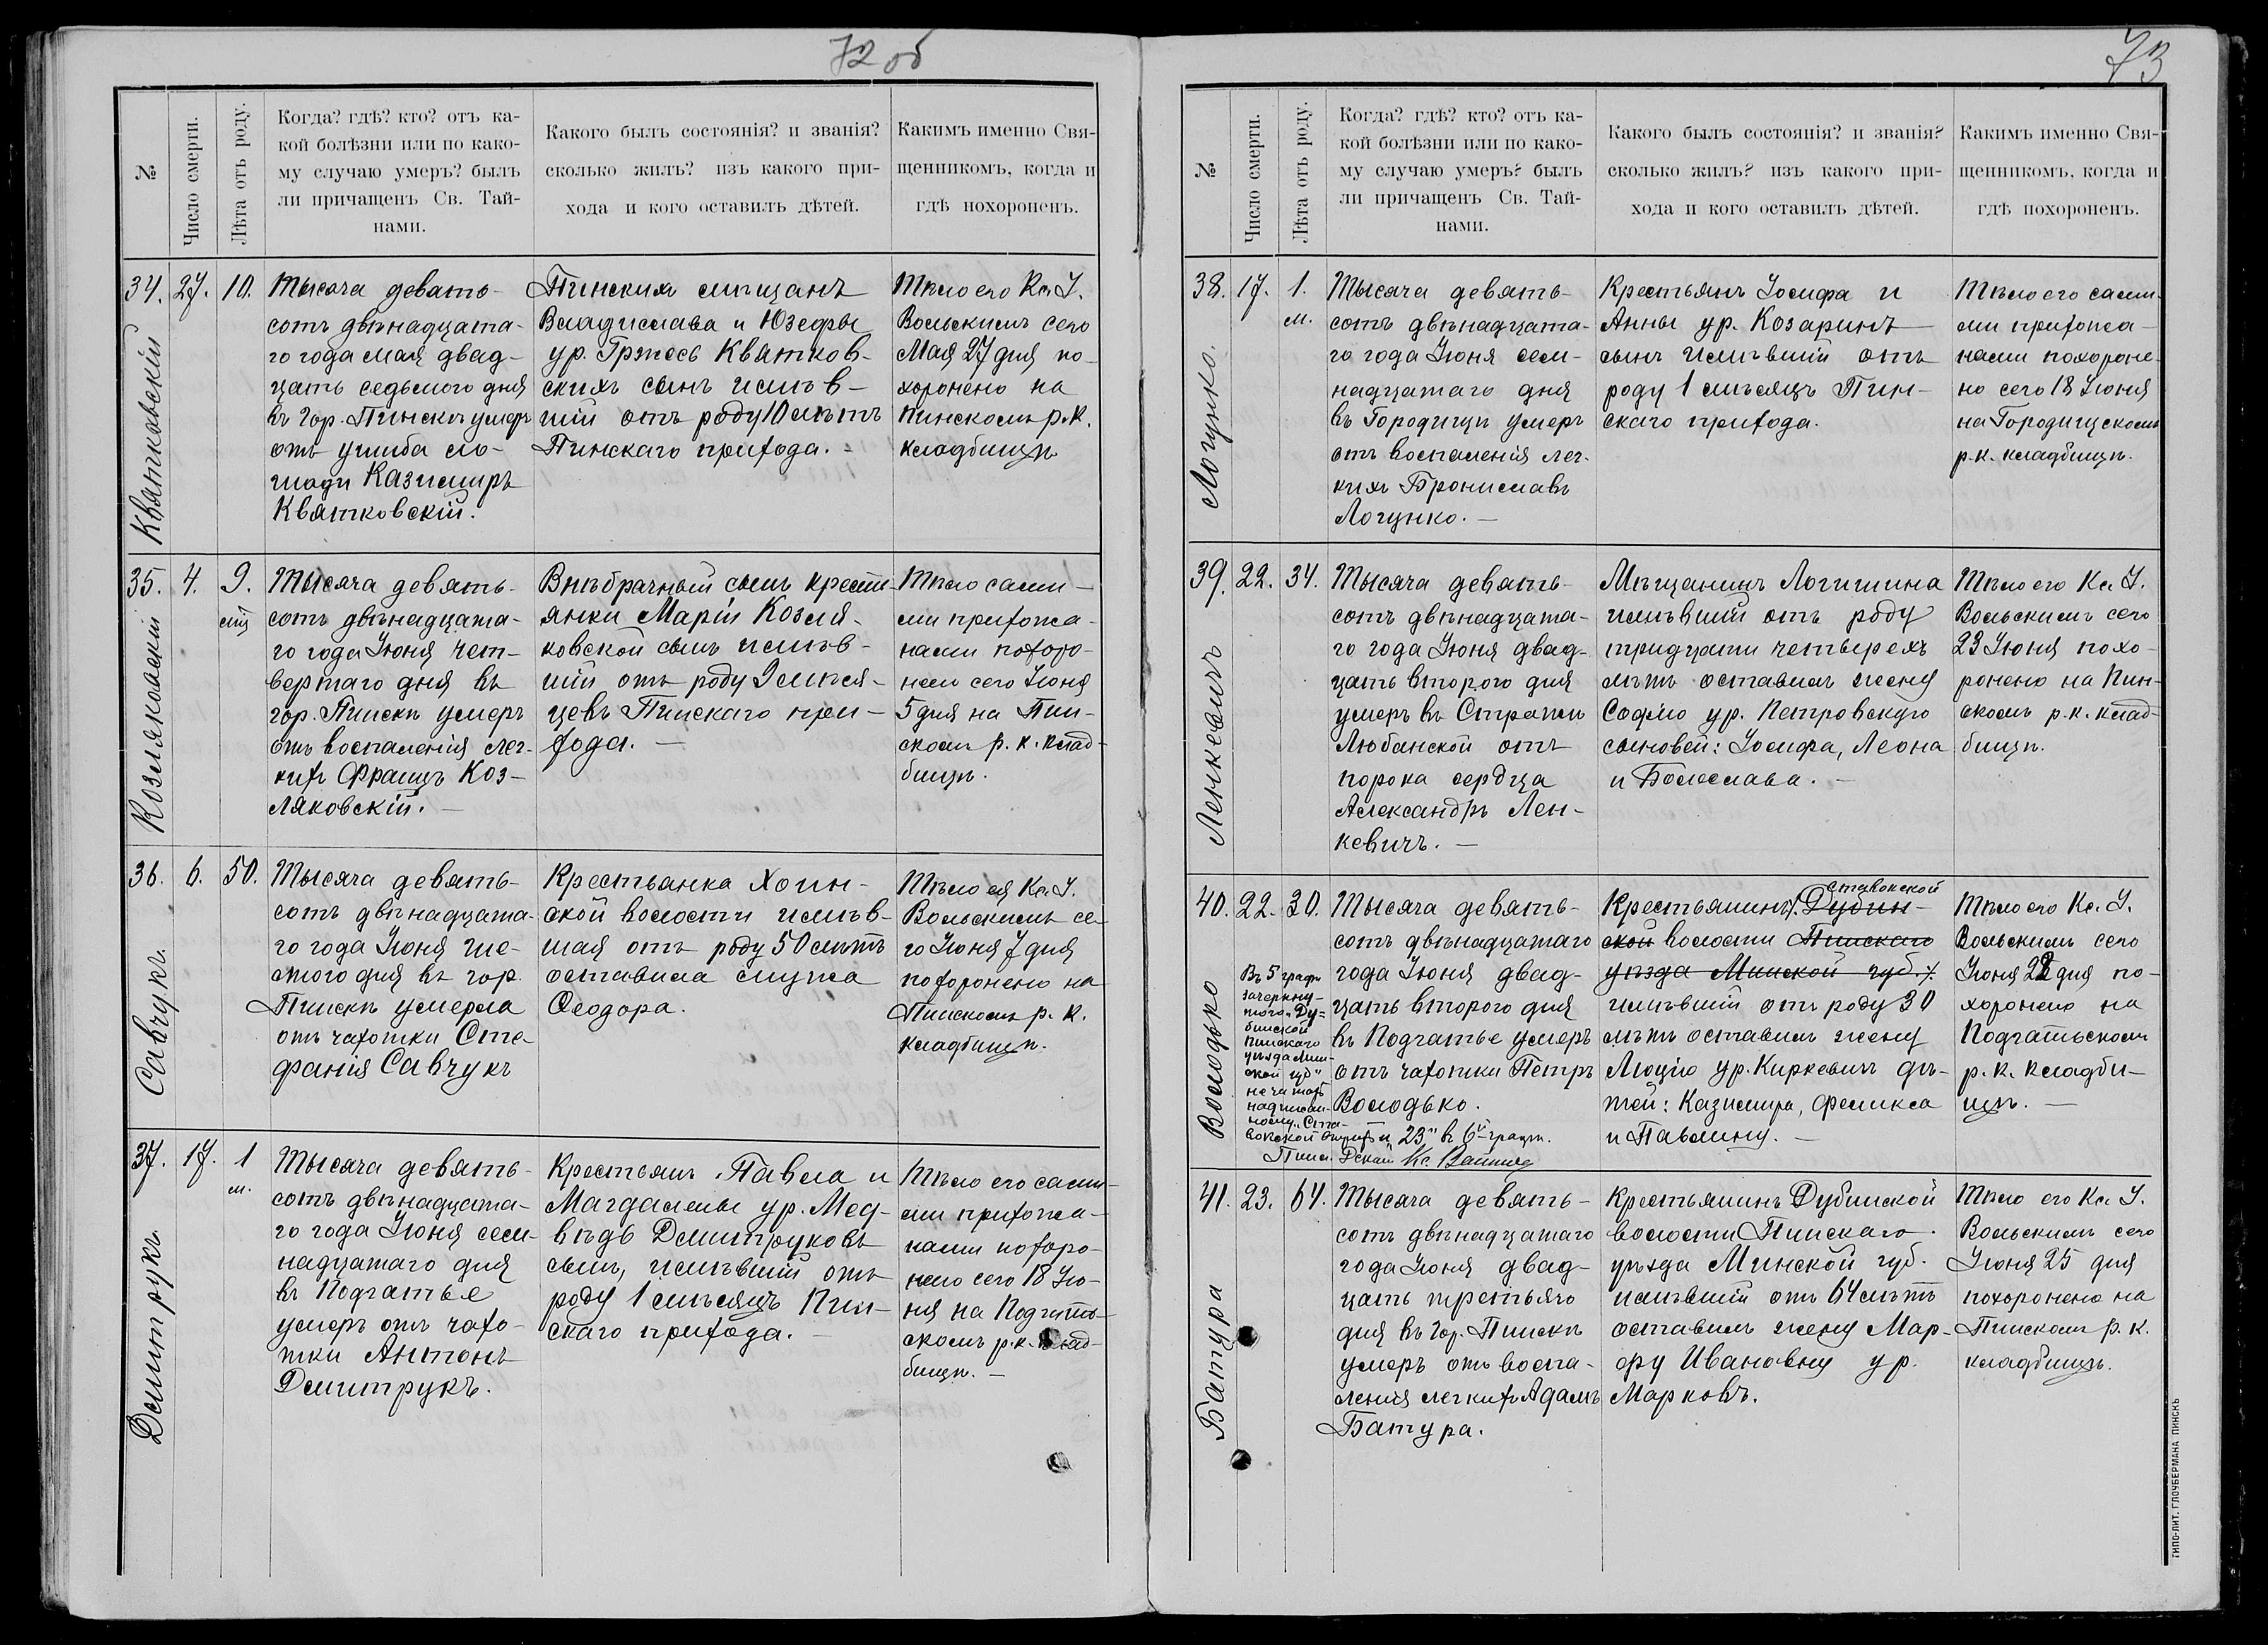 72 об
№
Число смерти.
Лѣта отъ роду.
Когда? гдѣ? кто? отъ ка-
кой болѣзни или по како-
му случаю умеръ? былъ
ли причащенъ Св. Тай-
нами.
Какого былъ состоянія? и званія?
сколько жилъ? изъ какого при-
хода и кого оставилъ дѣтей.
Какимъ именно Свя-
щенникомъ, когда и
гдѣ похороненъ.
34.
27.
10.
Квятковскій
Тысяча девять-
сотъ двѣнадцата-
го года мая двад-
цать седьмого дня
въ гор. Пинскѣ умеръ
отъ ушиба ло-
шади Казимиръ
Квятковскій.
Пинскихъ мѣщанъ
Владислава и Юзефы
ур. Гржесь Квятков-
скихъ сынъ имѣв-
шій отъ роду 10 лѣтъ
Пинскаго прихода.
Тѣло его Кс. У.
Вольскимъ сего
Мая 27 дня по-
хоронено на
Пинскомъ р.к.
кладбищѣ
35.
4.
9.
мц
Козляковскій
Тысяча девять-
сотъ двѣнадцата-
го года Іюня чет-
вертаго дня въ
гор. Пинскѣ умеръ
отъ воспаленія лег-
кихъ Францъ Коз-
ляковскій. —
Внѣбрачный сынъ крестъ-
янки Маріи Козля-
ковской сынъ имѣв-
шій отъ роду 9 мѣся-
цевъ Пинскаго при-
хода. —
Тѣло сами-
ми прихожа-
нами похоро-
нен сего Іюня
5 дня на Пин-
скомъ р. к. клад-
бищѣ.
36.
6.
50.
Савчукъ
Тысяча девять-
сотъ двѣнадцата-
го года Іюня ше-
стого дня въ гор.
Пинскѣ умерла
отъ чахотки Сте-
фанія Савчукъ
Крестьянка Хоин-
ской волости имѣв-
шая отъ роду 50 лѣтъ
оставила мужа
Ѳеодора.
Тѣло ея Кс. У.
Вольскимъ се-
го Іюня 7 дня
похоронено на
Пинскомъ р. к.
кладбищѣ.
37.
17.
1
м.
Дмитрукъ
Тысяча девять-
сотъ двѣнадцата-
го года Іюня сем-
надцатаго дня
въ Подгатье
умеръ отъ чахо-
тки Антонъ
Дмитрукъ.
Крестьянъ Павла и
Магдалены ур. Мед-
вѣдь Дмитруковъ
сынъ, имѣвшій отъ
роду 1 мѣсяцъ Пин-
скаго прихода. —
Тѣло его сами-
ми прихожа-
нами похоро-
нено сего 18 Ію-
ня на Подгать-
скомъ р.к. клад-
бищѣ. —
73
№
Число смерти.
Лѣта отъ роду.
Когда? гдѣ? кто? отъ ка-
кой болѣзни или по како-
му случаю умеръ? былъ
ли причащенъ Св. Тай-
нами.
Какого былъ состоянія? и званія?
сколько жилъ? изъ какого при-
хода и кого оставилъ дѣтей.
Какимъ именно Свя-
щенникомъ, когда и
гдѣ похороненъ.
38.
17.
1.
м.
Логунко.
Тысяча девять-
сотъ двѣнадцата-
го года Іюня сем-
надцатаго дня
въ Городищѣ умеръ
отъ воспаленія лег-
кихъ Брониславъ
Логунко. —
Крестьянъ Іосифа и
Анны ур. Козаринъ
сынъ имѣвшій отъ
роду 1 мѣсяцъ Пин-
скаго прихода.
Тѣло его сами-
ми прихожа-
нами похороне-
но сего 18 Іюня
на Городищскомъ
р.к. кладбищѣ.
39.
22.
34.
Ленкевичъ
Тысяча девять-
сотъ двѣнадцата-
го года Іюня двад-
цать второго дня
умеръ въ Стражи
Любанской отъ
порока сердца
Александръ Лен-
кевичъ. —
Мѣщанинъ Логишина
имѣвшій отъ роду
тридцати четырехъ
лѣтъ оставилъ жену
Софію ур. Петровскую
сыновей: Іосифа, Леона
и Болеслава. —
Тѣло его Кс. У.
Вольскимъ сего
23 Іюня похо-
ронено на Пин-
скомъ р.к. клад-
бищѣ.
40.
22.
30.
Володько
Тысяча девять-
сотъ двѣнадцатаго
года Іюня двад-
цать второго дня
въ Подгатье умеръ
отъ чахотки Петръ
Володько.
Въ 5 графѣ
зачеркну-
того „Ду-
бинской
Пинскаго
уѣзда Мин-
ской губ"
не читать
надписан-
ному „Ста-
вокской и „23" въ 6й графѣ.
Пин. Декан Кс.
Ставокской
Крестьянинъ Дубин-
ской волости Пинскаго
уѣзда Минской губ.
имѣвшій отъ роду 30
лѣтъ оставилъ жену
Люцію ур. Киркевичъ дѣ-
тей: Казимира, Феликса
и Павлину. —
Тѣло его Кс. У.
Вольскимъ сего
Іюня дня по-
хоронено на
Подгатьскомъ
р. к. кладби-
щѣ. —
41.
23.
64.
Батура
Тысяча девять-
сотъ двѣнадцатаго
года Іюня двад-
цать третьяго
дня въ гор. Пинскѣ
умеръ отъ воспа-
ленія легкихъ Адамъ
Батура.
Крестьянинъ Дубинской
волости Пинскаго
уѣзда Минской губ.
имѣвшій отъ 64 лѣтъ
оставилъ жену Мар-
фу Ивановну ур.
Марковъ.
Тѣло его Кс. У.
Вольскимъ сего
Іюня 25 дня
похоронено на
Пинскомъ р. к.
кладбищѣ.
ТИПО-ЛИТ. ГЛОУБЕРМАНА ПИНСКЪ